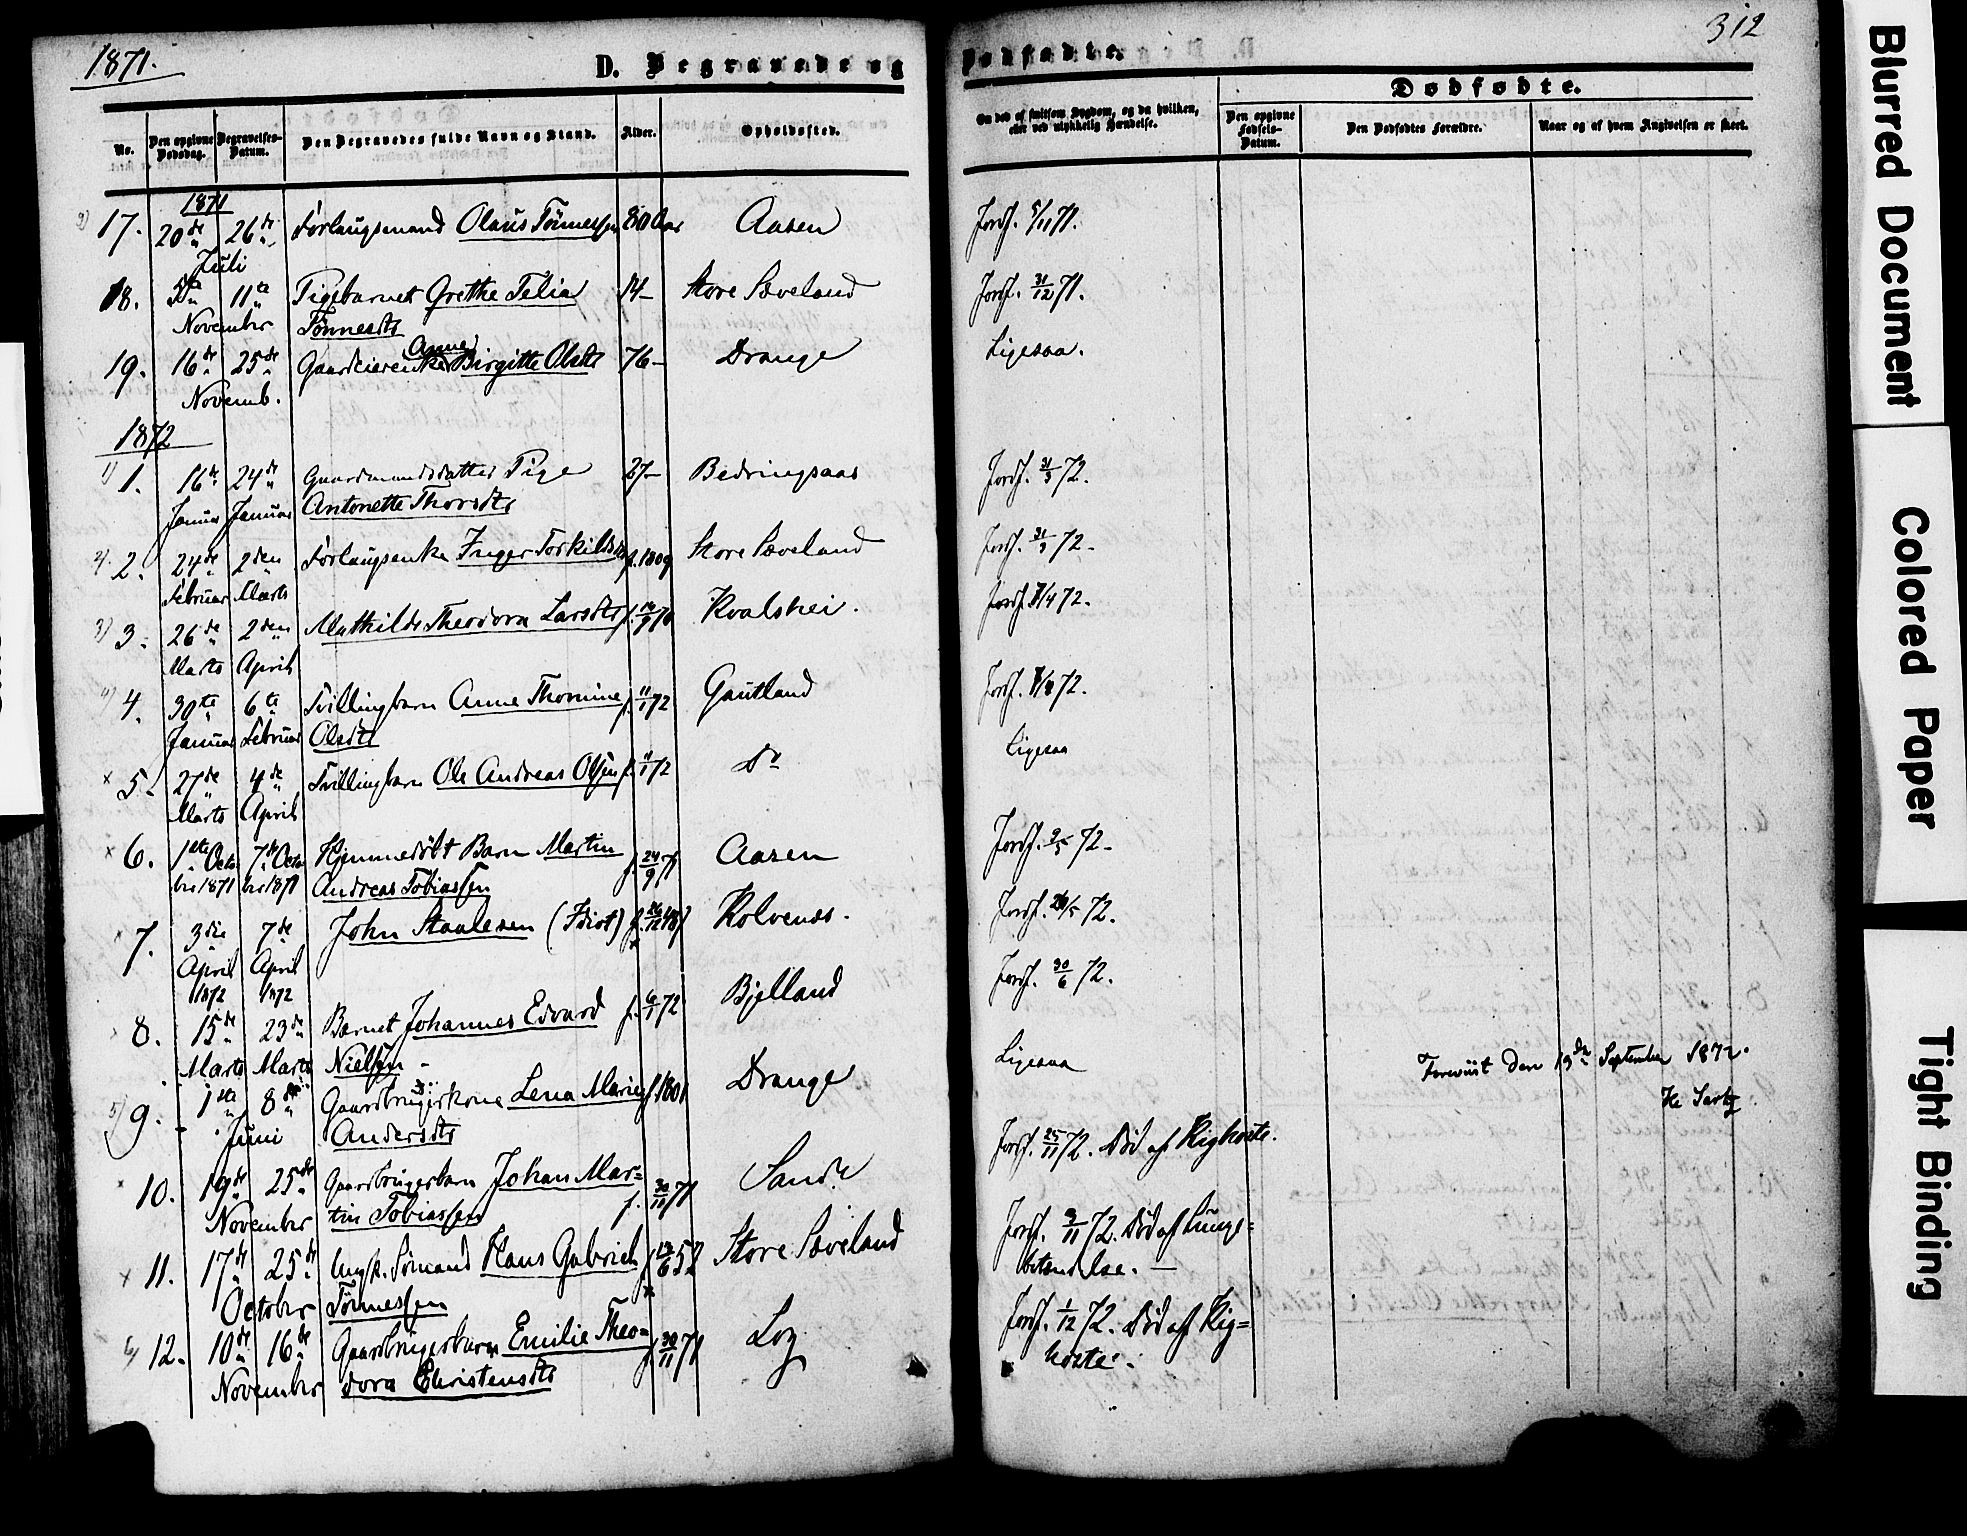 1871.
312
D. Begravede og Dødfødte.
No. Den opgivne Dødsdag. Begravelses-Datum. Den Begravedes fulde Navn og Stand. Alder. Opholdssted.
Om død af smitsom Sygdom, og da hvilken, eller ved ulykkelig Hændelse.
Dødfødte.
Den opgivne Fødsels-Datum. Den Dødfødtes Forældre. Naar og af hvem Angivelsen er skeet.
1871
17. 20de 26de Førlaugsmand Olaus Tønnessen 80 Aar Aasen Jordf. 5/11 71.
Juli
18. 5te 11te Pigebarnet Grethe Telia 14- Store Sæveland Jordf. 31/12 71.
November Tønnesdtr
19. 16de 25de Gaardeierenke Anne Birgitte Olsdtr 76- Drange Ligesaa.
Novemb.
1872
1) 1. 16de 24de Gaardmandsdatter Pige 27- Bedringsaas Jordf. 31/3 72.
Januar Januar Antonette Thorsdtr
2) 2. 24de 2den Førlaugsenke Inger Torkildsdtr f. 1809 Store Sæveland Jordf. 31/3 72.
Februar Marts
3) 3. 26de 2den Mathilde Theodora Larsdtr Kvalshei. Jordf. 7/4 72.
Marts April
4) 4. 30te 6te Tvillingbarn Anne Thomine f. 11/1 72 Gautland Jordf. 72.
Januar Februar Olsdtr
× 5. 27de 4de Tvillingbarn Ole Andreas Olsen f. 11/1 72 Do Ligesaa
Marts April
× 6. 1ste Octo 7de Octo Hjemmedøbt Barn Martin f. 24/9 71 Aasen Jordf. 9/5 72.
ber 1871 ber 1871 Andreas Tobiassen
7. 3die 7de John Staalesen (Idiot) Rolvenes. Jordf. 72.
April April
1872 1872
8. 15de 23de Barnet Johannes Edvard f. 6/1 72 Bjelland Jordf. 30/6 72.
Marts Marts Nielsen
5) 9. 1ste 8de Gaardbrugerkone Lena Marie f. 1801 Drange Ligesaa
Juni Andersdtr
Foreviist den 13de September 1872.
× 10. 19de 25de Gaardbrugerbarn Johan Mar= f. 30/11 71 Sande Jordf. 25/11 72. Død af Kighoste.
November tin Tobiassen
× 11. 17de 25de Ungk. Sømand Hans Gabriel Store Sæveland Jordf. 3/11 72. Død af Lunge=
October Tønnessen betændelse.
6) 12. 10de 16de Gaardbrugerbarn Emilie Theo= f. 30/11 71 Log Jordf. 1/12 72. Død af Kig=
November dora Christensdtr hoste.
Blurred Document
Colored Paper
Tight Binding